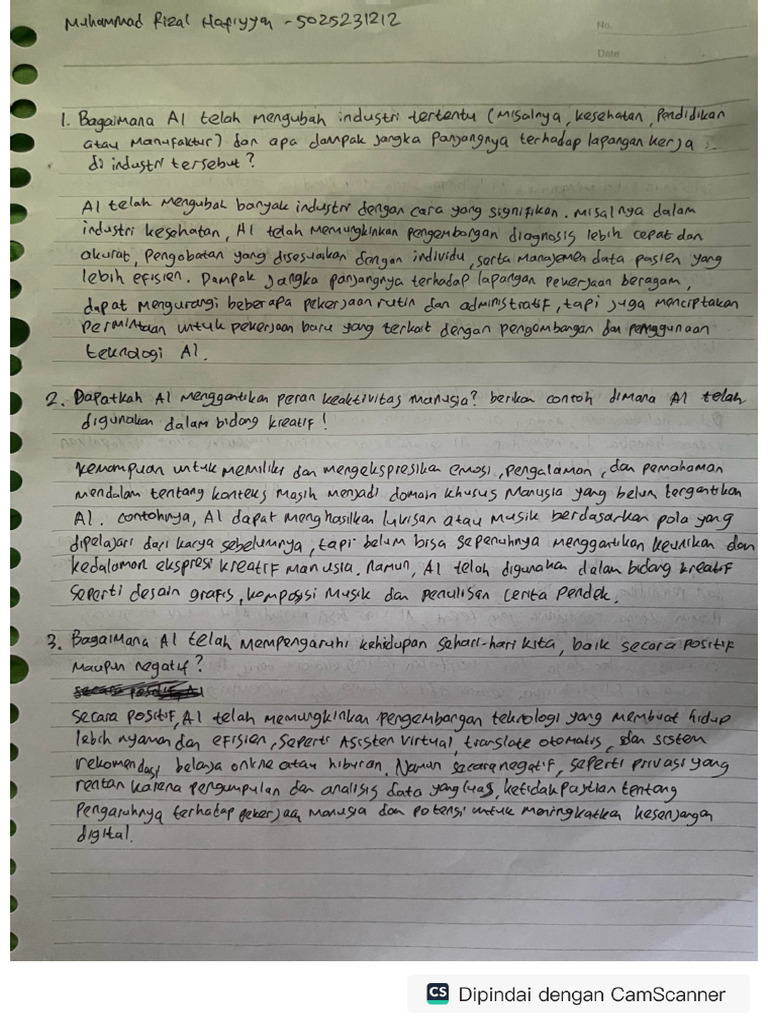 Muhammad Rizal Hafiyyan - 5025231212
No.
Date
1. Bagaimana AI telah mengubah industri tertentu (misalnya, kesehatan, Pendidikan
atau Manufaktur) dan apa dampak jangka Panjangnya terhadap lapangan kerja
di industri tersebut?
AI telah mengubah banyak industri dengan cara yang signifikan. misalnya dalam
industri kesehatan, AI telah memungkinkan pengembangan diagnosis lebih cepat dan
akurat, Pengobatan yang disesuaikan dengan individu, serta Manajemen data pasien yang
lebih efisien. Dampak jangka panjangnya terhadap lapangan pekerjaan beragam,
dapat mengurangi beberapa pekerjaan rutin dan administratif, tapi juga menciptakan
Permintaan untuk pekerjaan baru yang terkait dengan pengembangan dan penggunaan
teknologi AI.
2. Dapatkah AI menggantikan peran keaktivitas manusia? berikan contoh dimana AI telah
digunakan dalam bidang kreatif!
Kemampuan untuk memiliki dan mengekspresikan emosi, pengalaman, dan pemahaman
mendalam tentang konteks masih menjadi domain khusus manusia yang belum tergantikan
AI. contohnya, AI dapat menghasilkan lukisan atau musik berdasarkan pola yang
dipelajari dari karya sebelumnya, tapi belum bisa sepenuhnya menggantikan keunikan dan
kedalaman ekspresi kreatif manusia. Namun, AI telah digunakan dalam bidang kreatif
seperti desain grafis, komposisi musik dan penulisan cerita Pendek.
3. Bagaimana AI telah mempengaruhi kehidupan sehari-hari kita, baik secara positif
maupun negatif?
Secara positif, AI telah memungkinkan pengembangan teknologi yang membuat hidup
lebih nyaman dan efisien, seperti Asisten virtual, translate otomatis, dan sistem
rekomendasi belanja online atau hiburan. Namun secara negatif, seperti privasi yang
rentan karena pengumpulan dan analisis data yang luas, ketidakpastian tentang
Pengaruhnya terhadap pekerjaan manusia dan potensi untuk meningkatkan kesenjangan
digital.
CS Dipindai dengan CamScanner